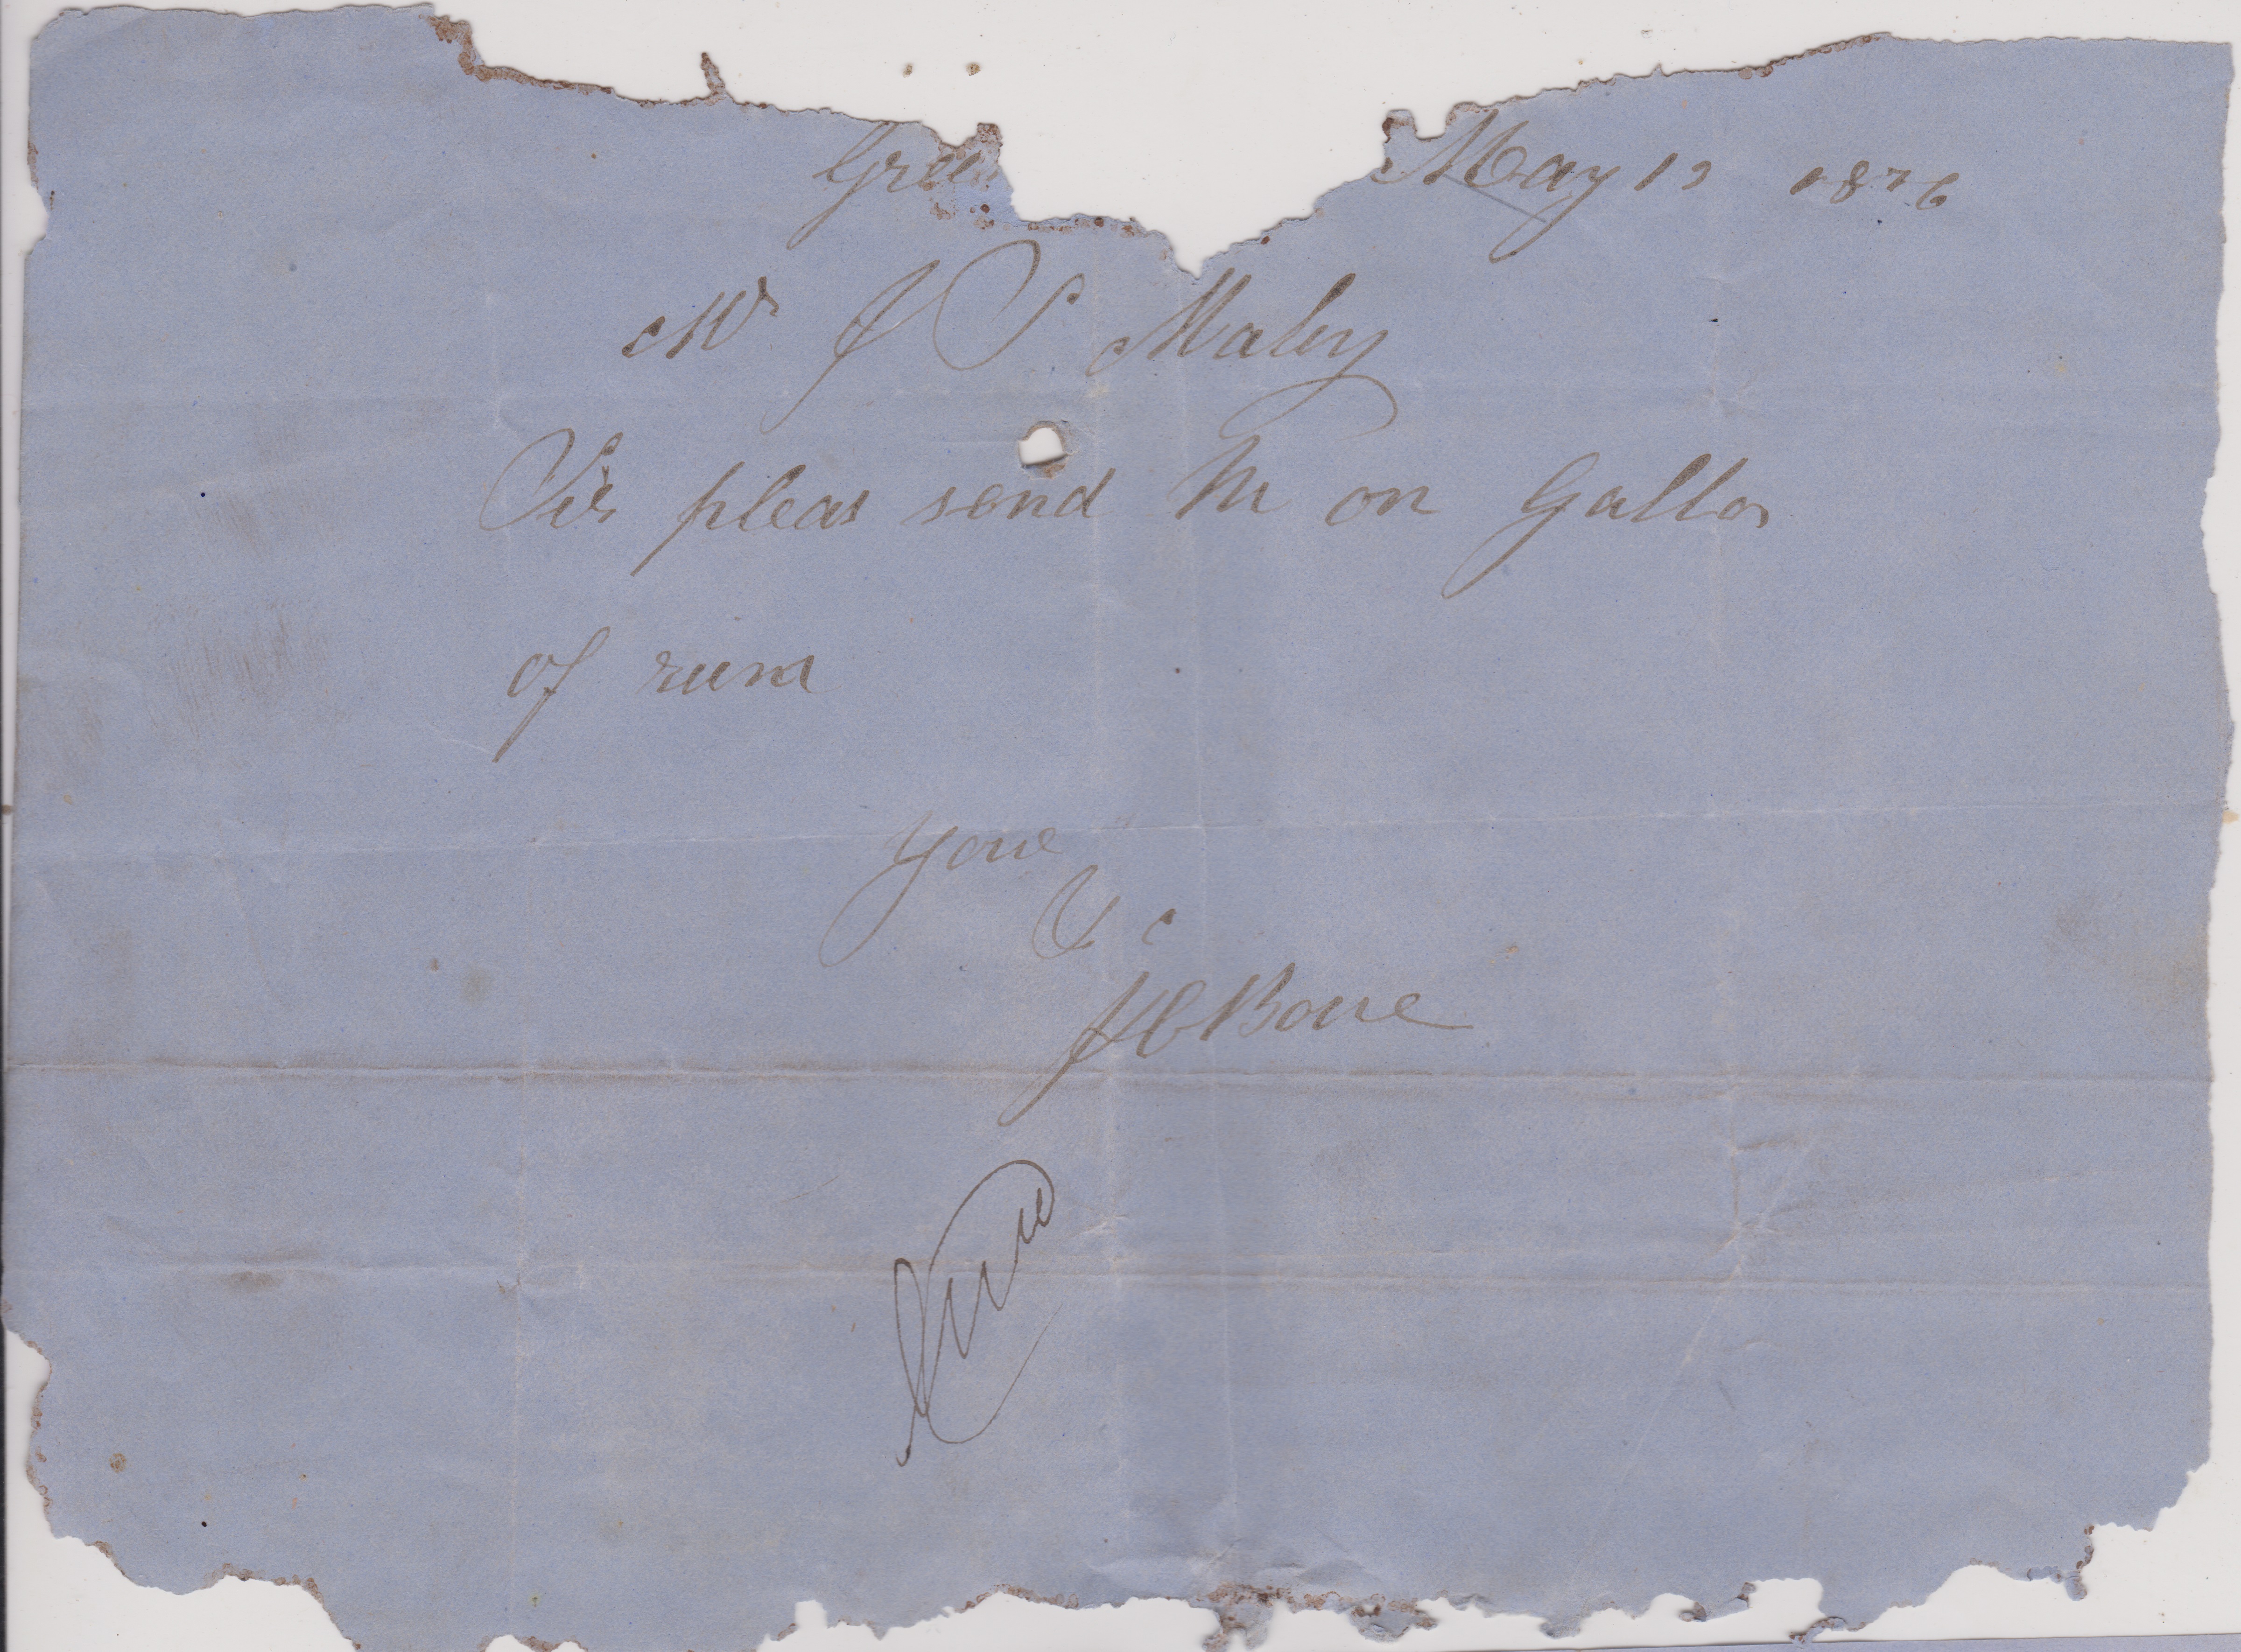 Gree May 12 1876
Mr J S Maby
Sir pleas send Me on Gallon
of rum
your
&c
J C Bone